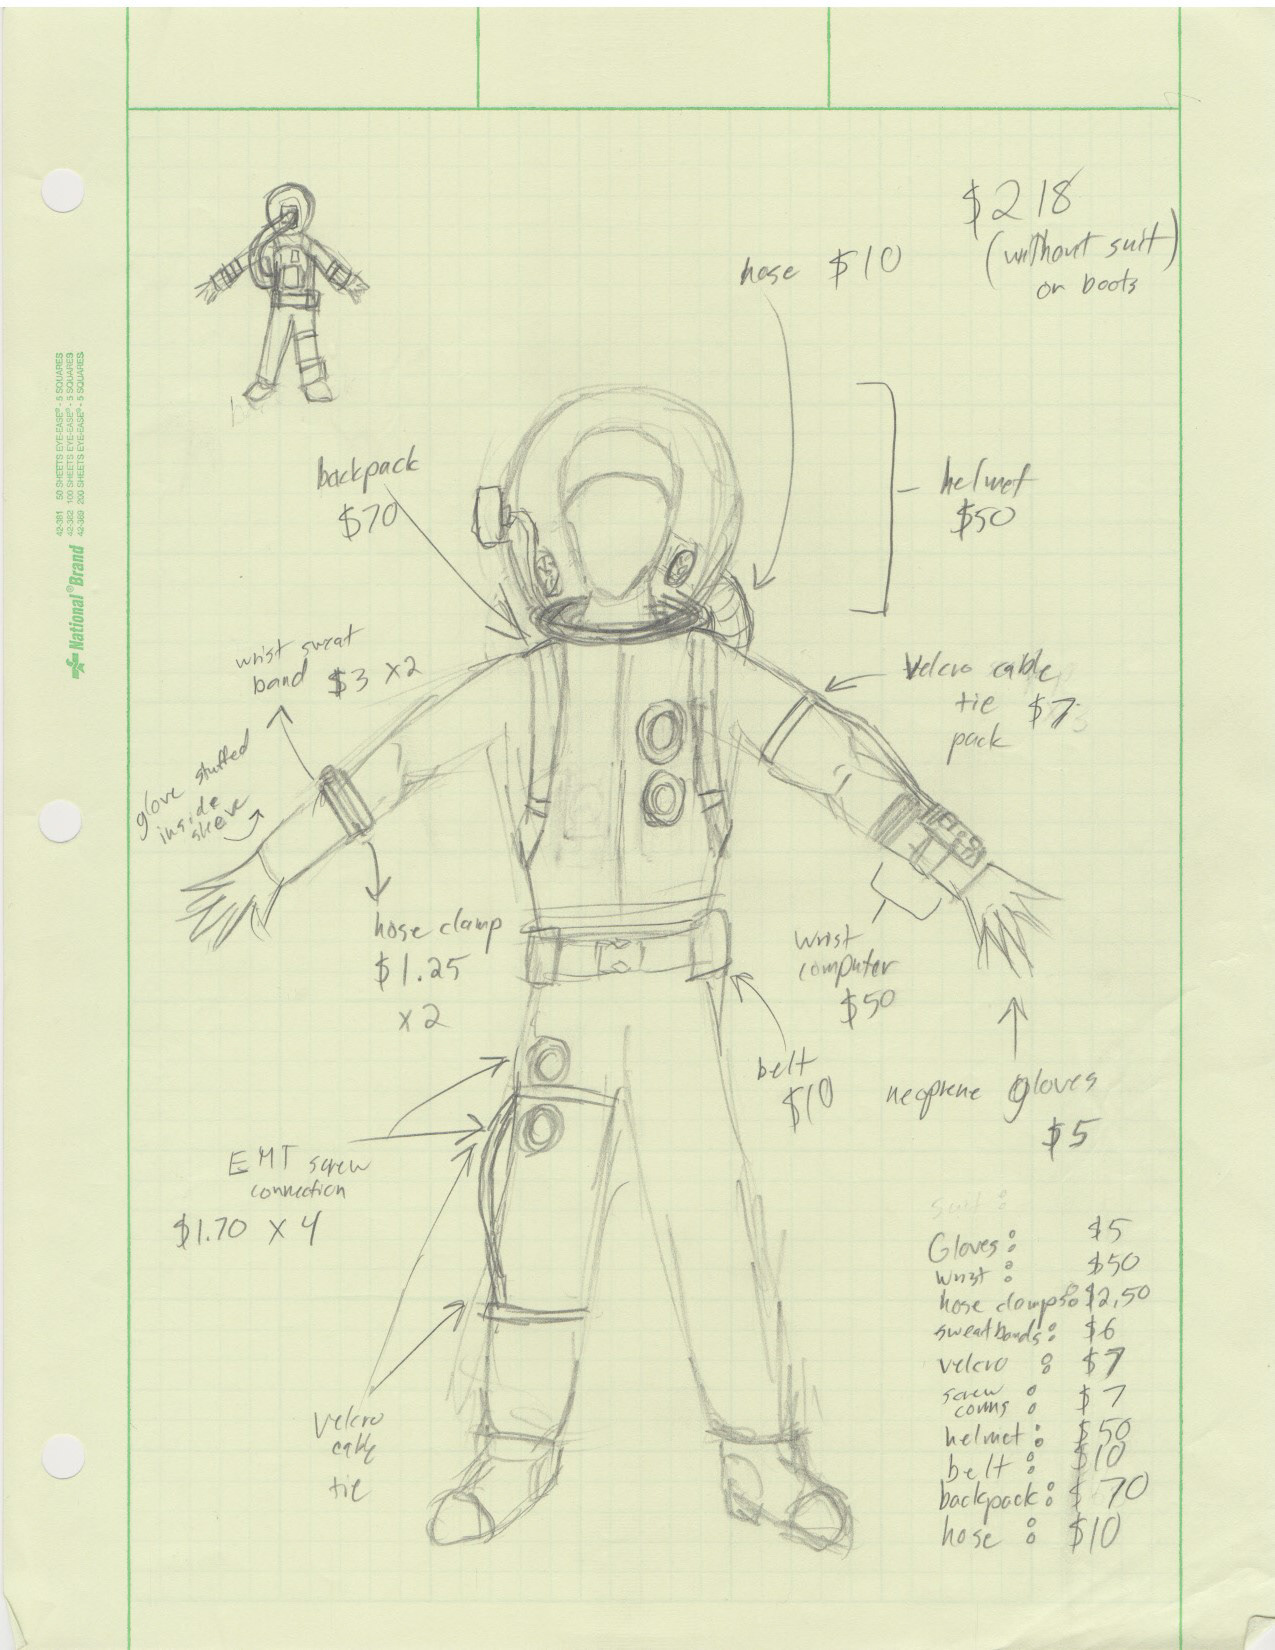 $218
(without suit)
or boots
hose $10
backpack
$70
helmet
$50
wrist sweat
band $3 x2
Velcro cable
tie $7
pack
glove stuffed
inside
sleeve
hose clamp
$1.25
x2
wrist
computer
$50
belt
$10
neoprene gloves
$5
EMT screw
connection
$1.70 x 4
Velcro
cable
tie
suit:
Gloves: $5
wrist: $50
hose clamps: $2.50
sweatbands: $6
velcro: $7
screw
conns: $7
helmet: $50
belt: $10
backpack: $70
hose: $10
42-381 50 SHEETS EYE-EASE® - 5 SQUARES
42-382 100 SHEETS EYE-EASE® - 5 SQUARES
42-389 200 SHEETS EYE-EASE® - 5 SQUARES
National® Brand